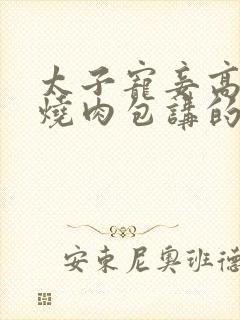 太子寵妾高
燒肉包講的
安東尼奧班德